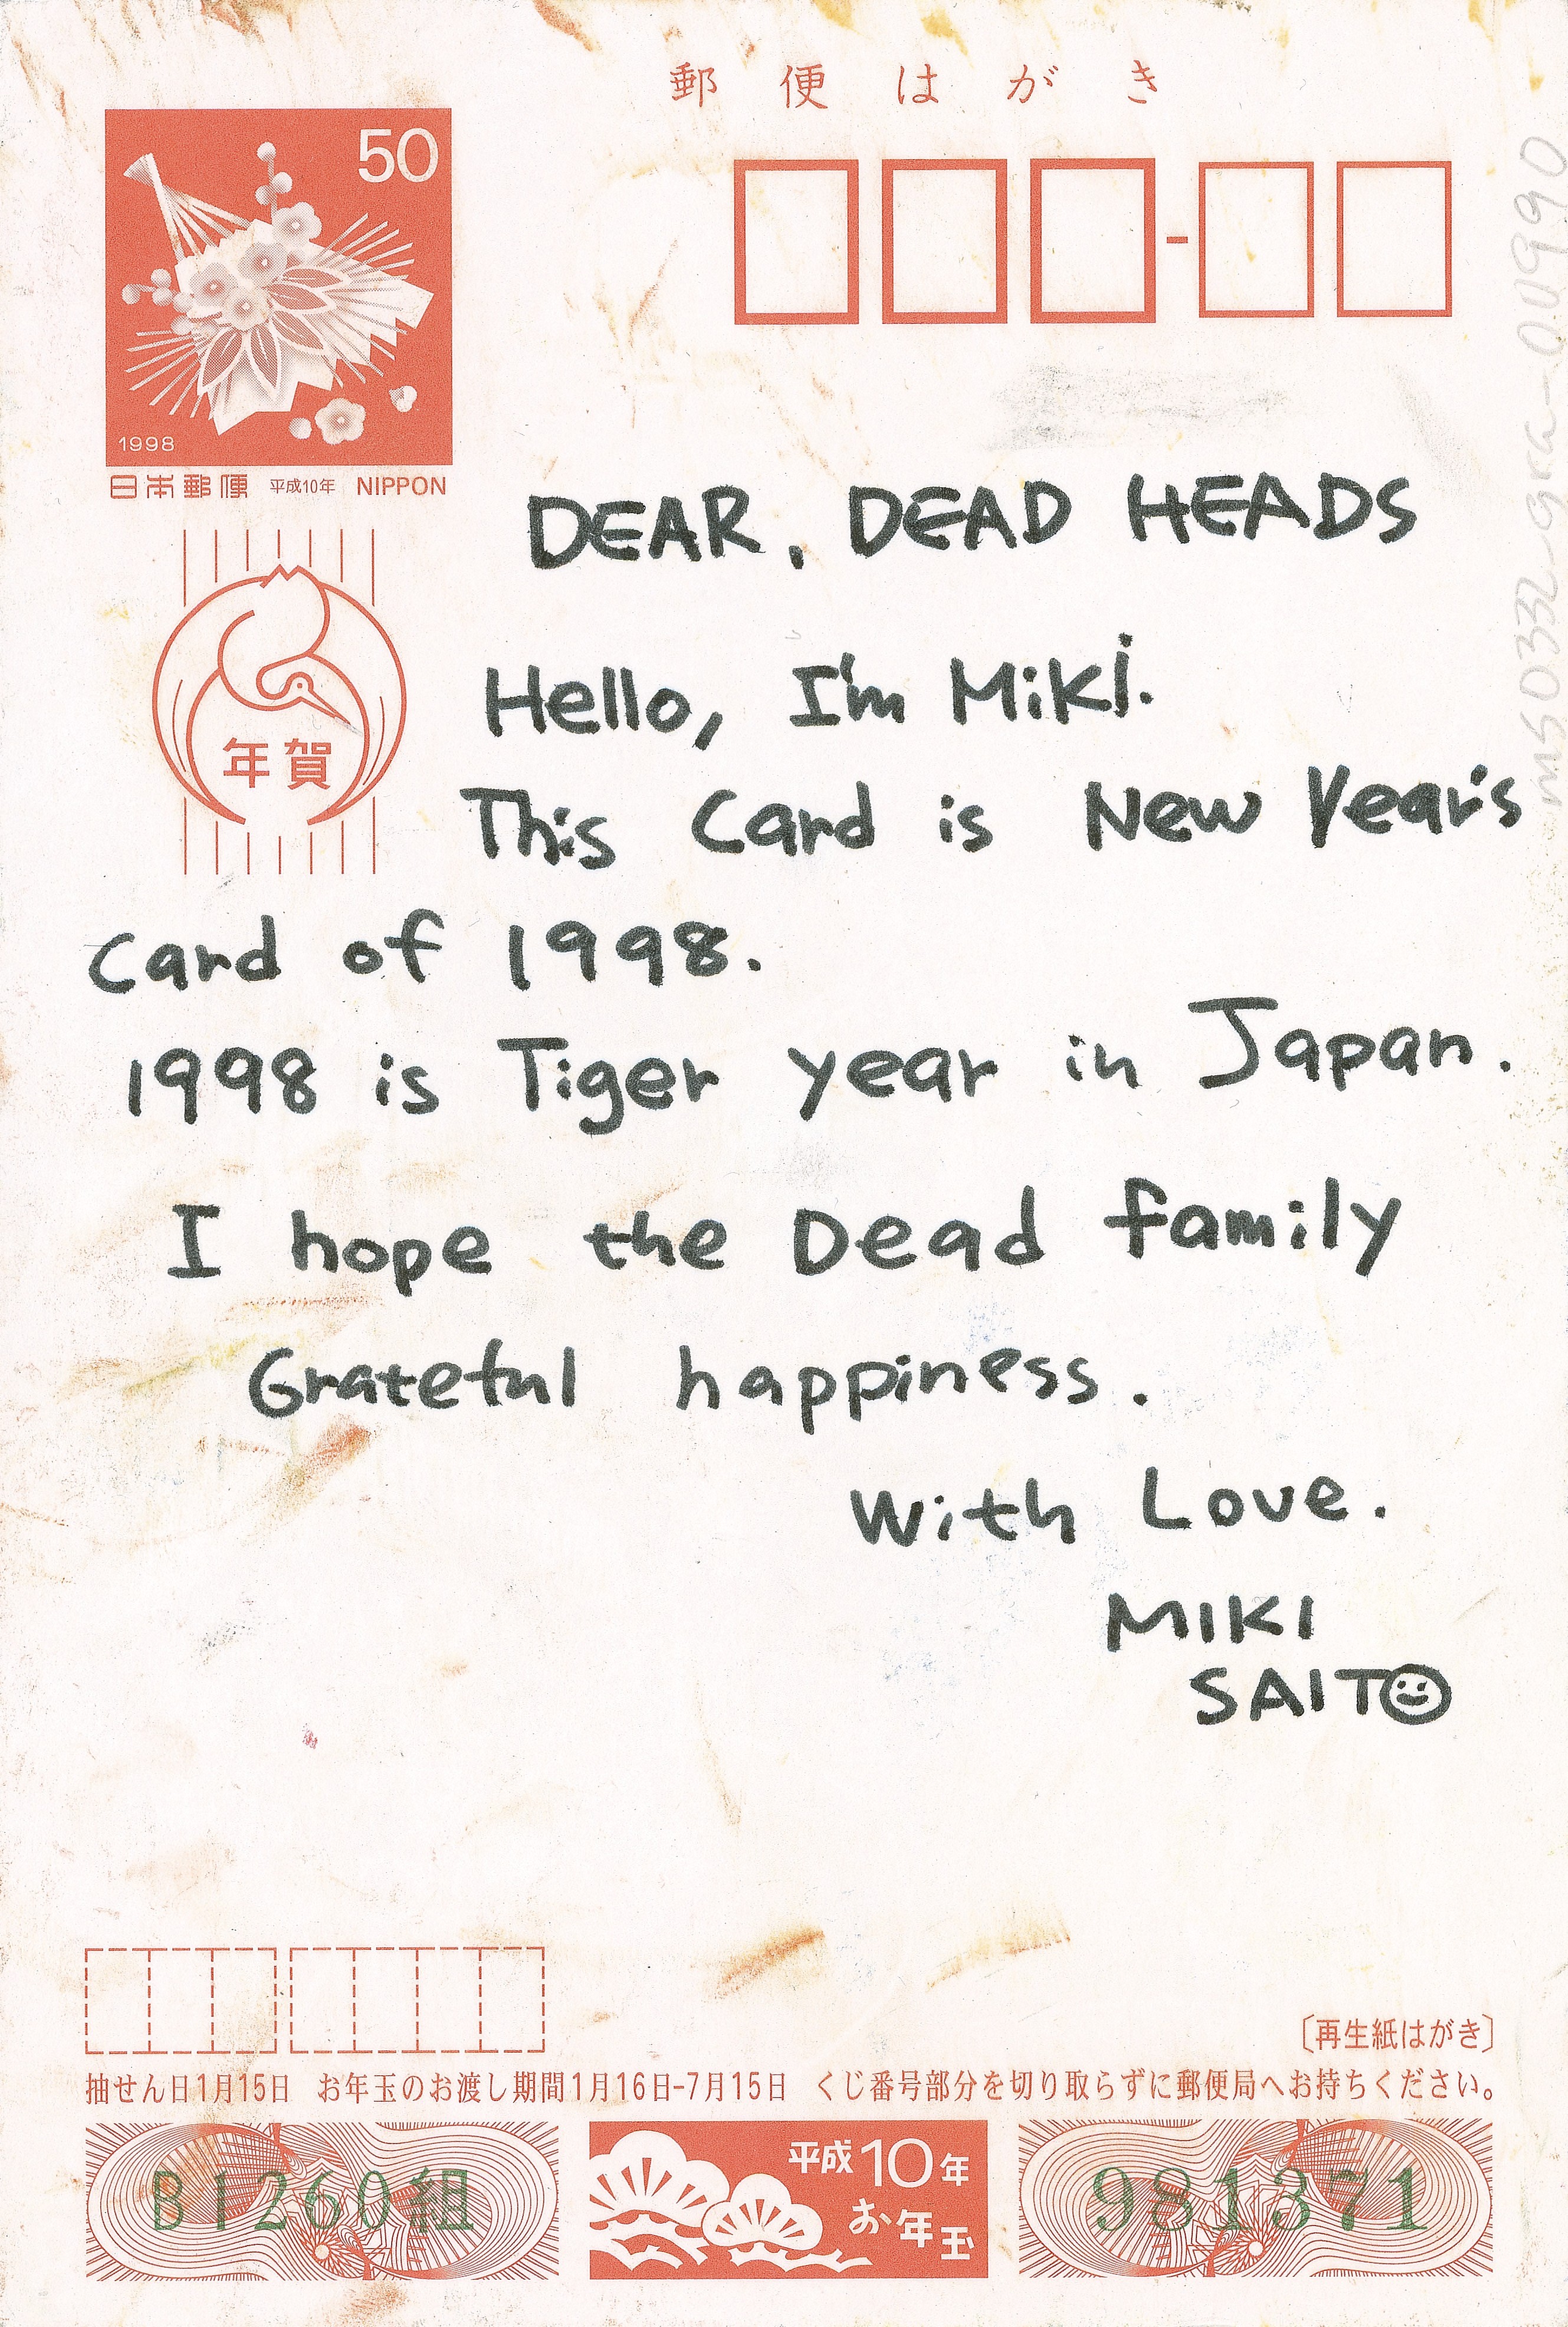 郵便はがき
50
1998
日本郵便 平成10年 NIPPON
年賀
DEAR, DEAD HEADS
Hello, I'm Miki.
This Card is New Year's
Card of 1998.
1998 is Tiger year in Japan.
I hope the Dead family
Grateful happiness.
With Love.
MIKI
SAITO
ms0332-gra-04990
〔再生紙はがき〕
抽せん日1月15日 お年玉のお渡し期間1月16日-7月15日 くじ番号部分を切り取らずに郵便局へお持ちください。
B1260組
平成10年
お年玉
981371